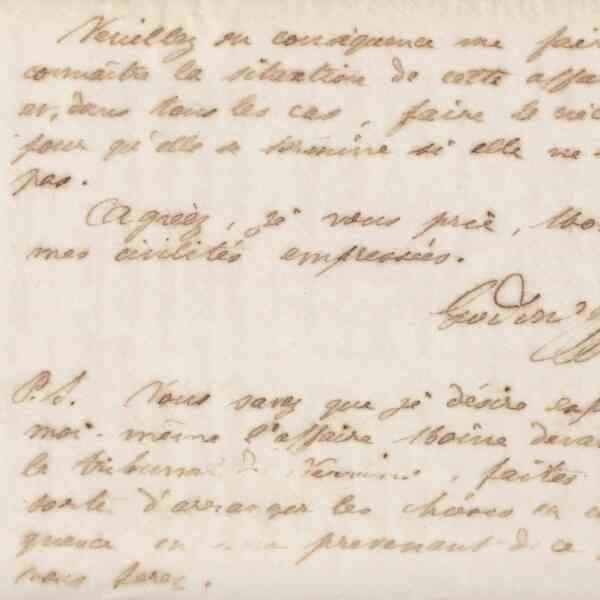 Veuillez en conséquence me fair
connaître la situation de cette affai
et, dans tous les cas, faire le néc
pour qu'elle se termine si elle ne
pas.
Agréez, je vous prie, Mo
mes civilités empressées.
Godin
P.S. Vous savez que je désire exp
moi-même l'affaire Moine deva
le tribunal de Vervins, faites
sorte d'arranger les choses en
quence en me prevenant de ce
vous ferez.